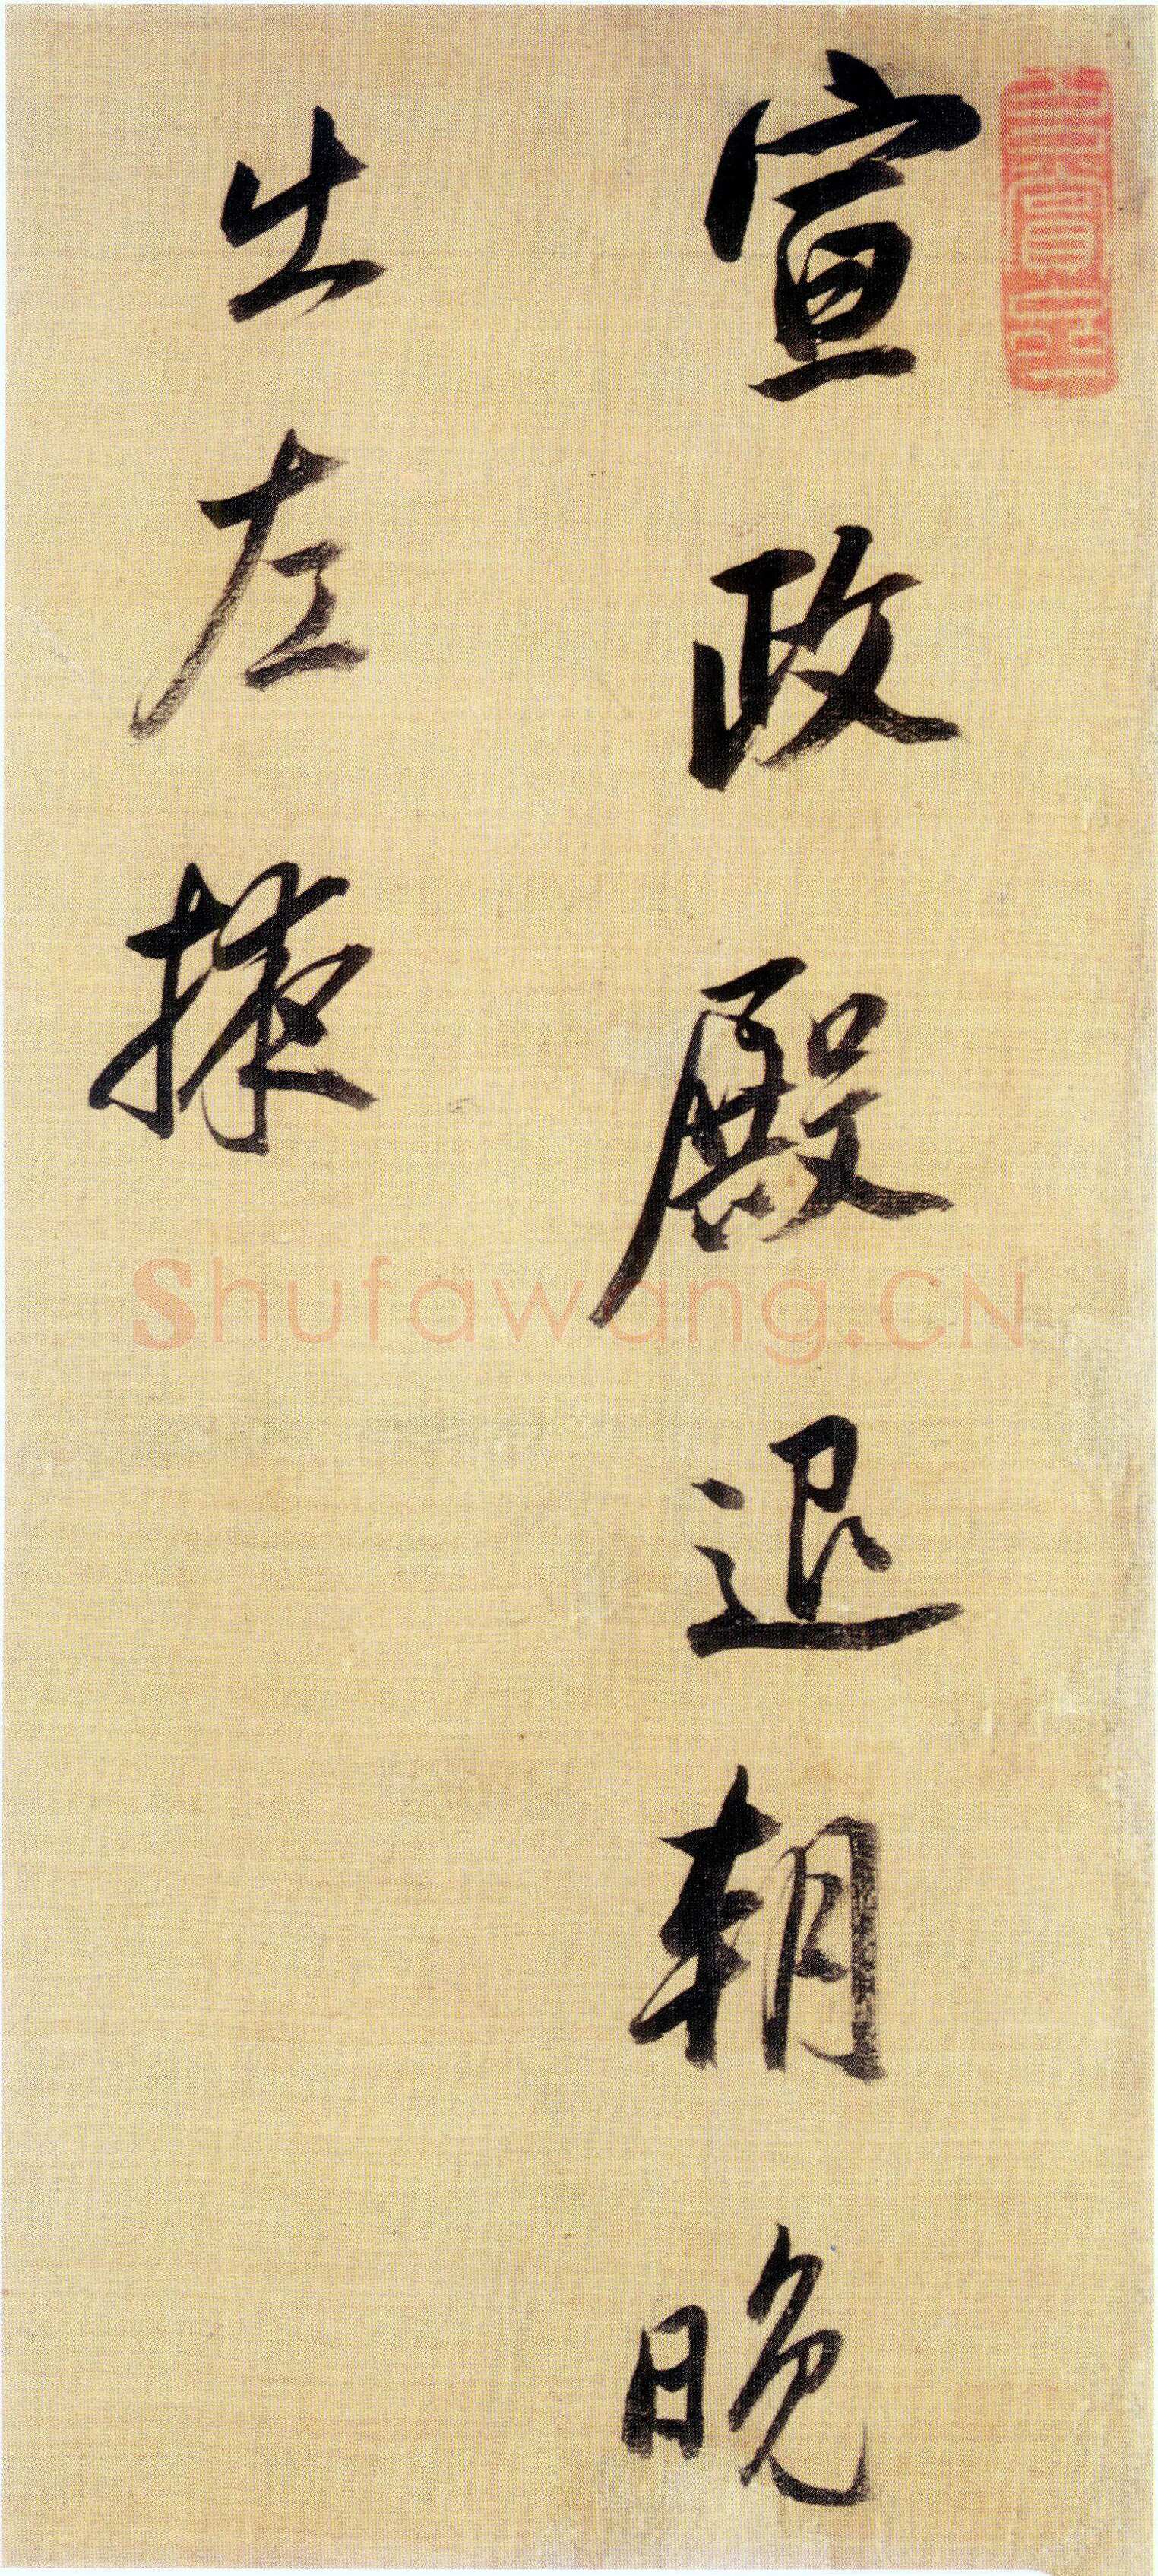 玄賞齋
宣政殿退朝晚
出左掖
Shufawang.CN